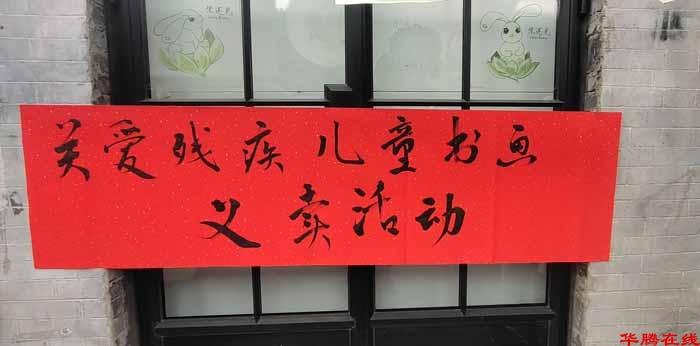 关爱残疾儿童书画
义卖活动
华腾在线